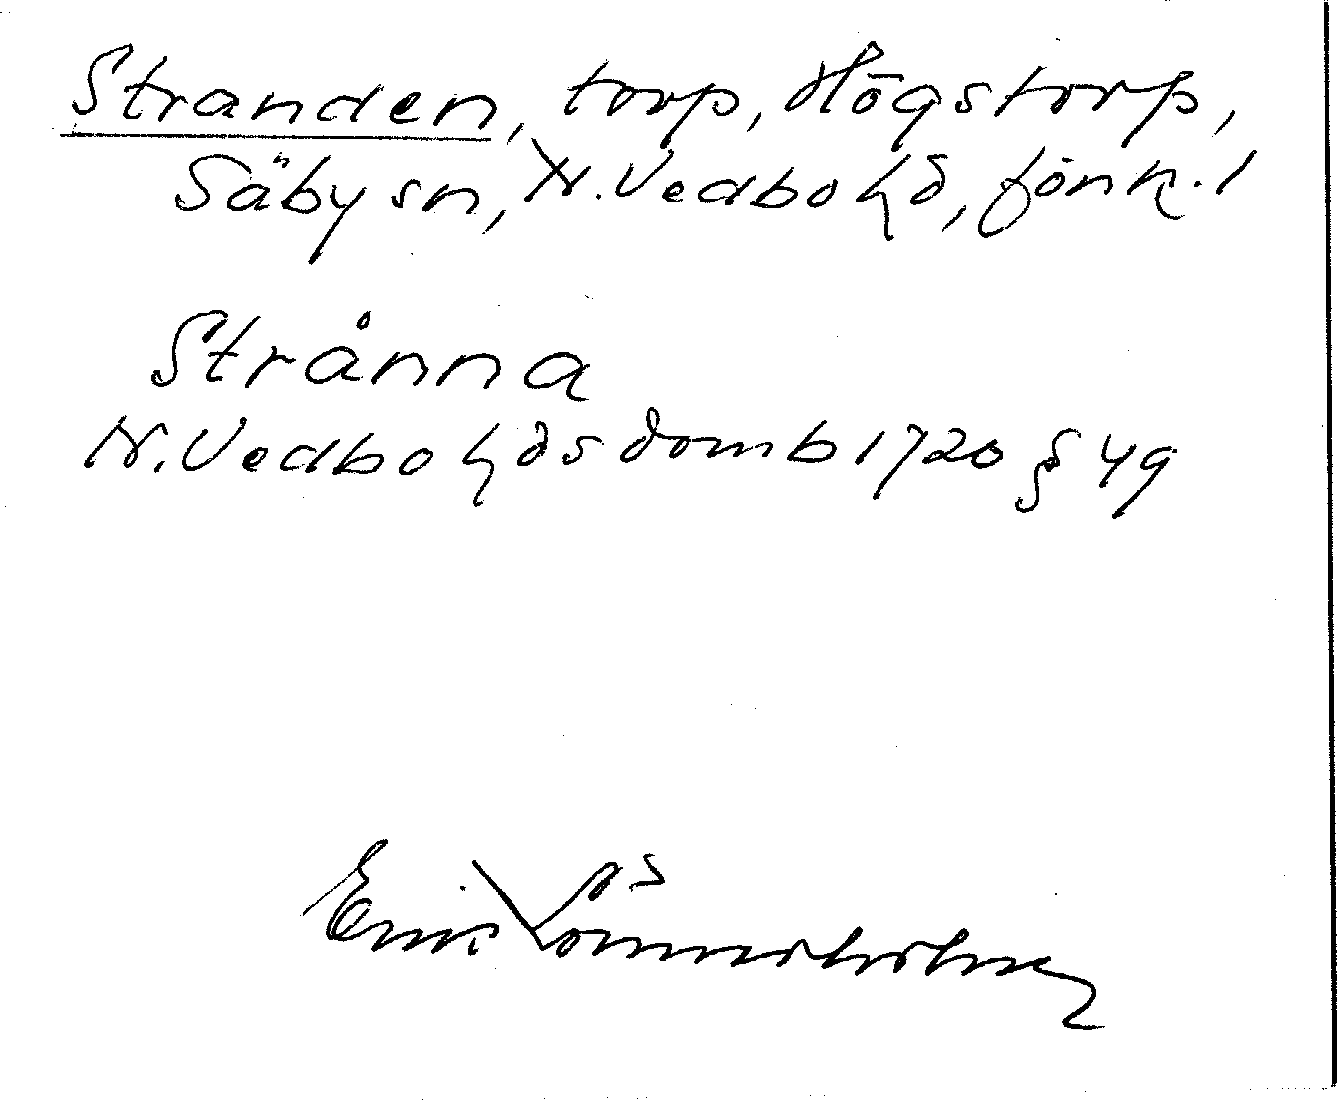 Stranden, torp, Högstorp,
Säby sn, N. Vedbo hd, Jönk. l
Strånna
N. Vedbo hds domb 1720 § 49
Erik Lönnerholm